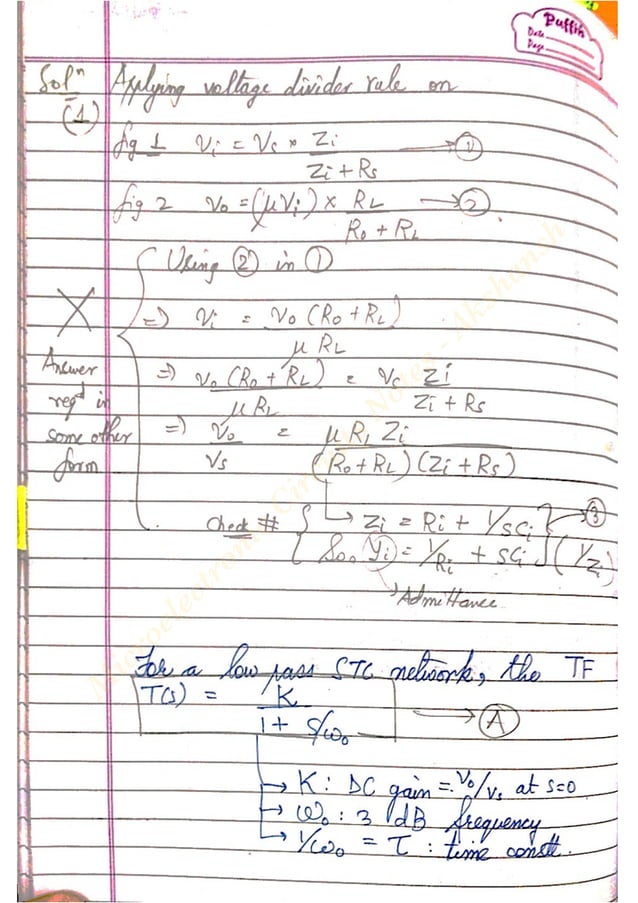 Puffin
Date
Page
Solⁿ Applying voltage divider rule on
(1)
fig 1 Vi = Vs × Zi / (Zi + Rs) → ①
fig 2 Vo = (μVi) × RL / (Ro + RL) → ②
Using ② in ①
⇒ Vi = Vo (Ro + RL) / μ RL
⇒ Vo (Ro + RL) / μ RL = Vs Zi / (Zi + Rs)
⇒ Vo / Vs = μ RL Zi / (Ro + RL) (Zi + Rs)
X
Answer
reqᵈ in
some other
form
Check # { → Zi = Ri + 1/sCi } → ③
So, Yi = 1/Ri + sCi (1/Zi)
→ Admittance
For a low pass STC network, the TF
T(s) = K / (1 + s/ω₀) → Ⓐ
→ K : DC gain = Vo/Vs at s=0
→ ω₀ : 3 dB frequency
→ 1/ω₀ = τ : time constt.
Microelectronic Circuits Notes - Akshansh